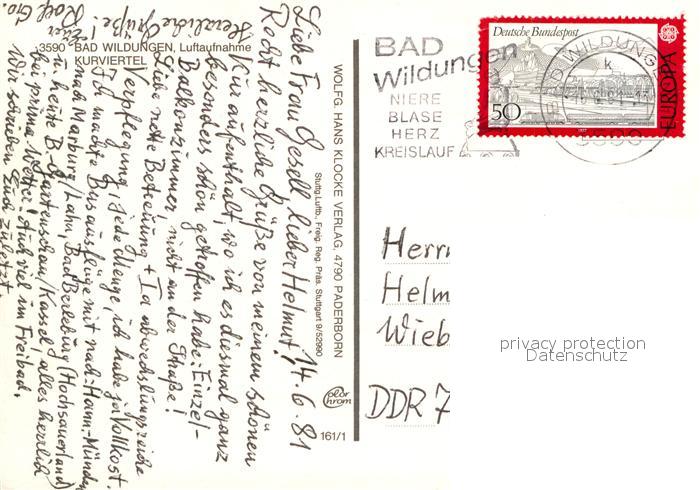 3590 BAD WILDUNGEN, Luftaufnahme
KURVIERTEL
Liebe Frau Gesell, lieber Helmut! 14.6.81
Recht herzliche Grüße von meinem schönen
Kuraufenthalt, wo ich es diesmal ganz
besonders schön getroffen habe: Einzel-
Balkonzimmer, nicht an der Straße!
Liebe nette Betreuung + Ia abwechslungsreiche
Verpflegung, jede Menge, ich habe ja Vollkost.
Ich machte Busausflüge mit nach: Hann-Münden
nach Marburg/Lahn, Bad Berleburg (Hochsauerland)
u. heute B-Gartenschau/Kassel, alles herrlich
bei prima Wetter! Auch viel im Freibad.
Wir schrieben Euch zuletzt.
Herzliche Grüße! Euer
Rolf
WOLFG. HANS KLOCKE VERLAG, 4790 PADERBORN
Stuttg. Luftb., Freig. Reg. Präs. Stuttgart 9/52990
color
chrom
161/1
BAD
Wildungen
NIERE
BLASE
HERZ
KREISLAUF
Deutsche Bundespost
50
1977
EUROPA
BAD WILDUNGEN
k
3590
Herrn
Helm
Wieb
DDR 7
privacy protection
Datenschutz